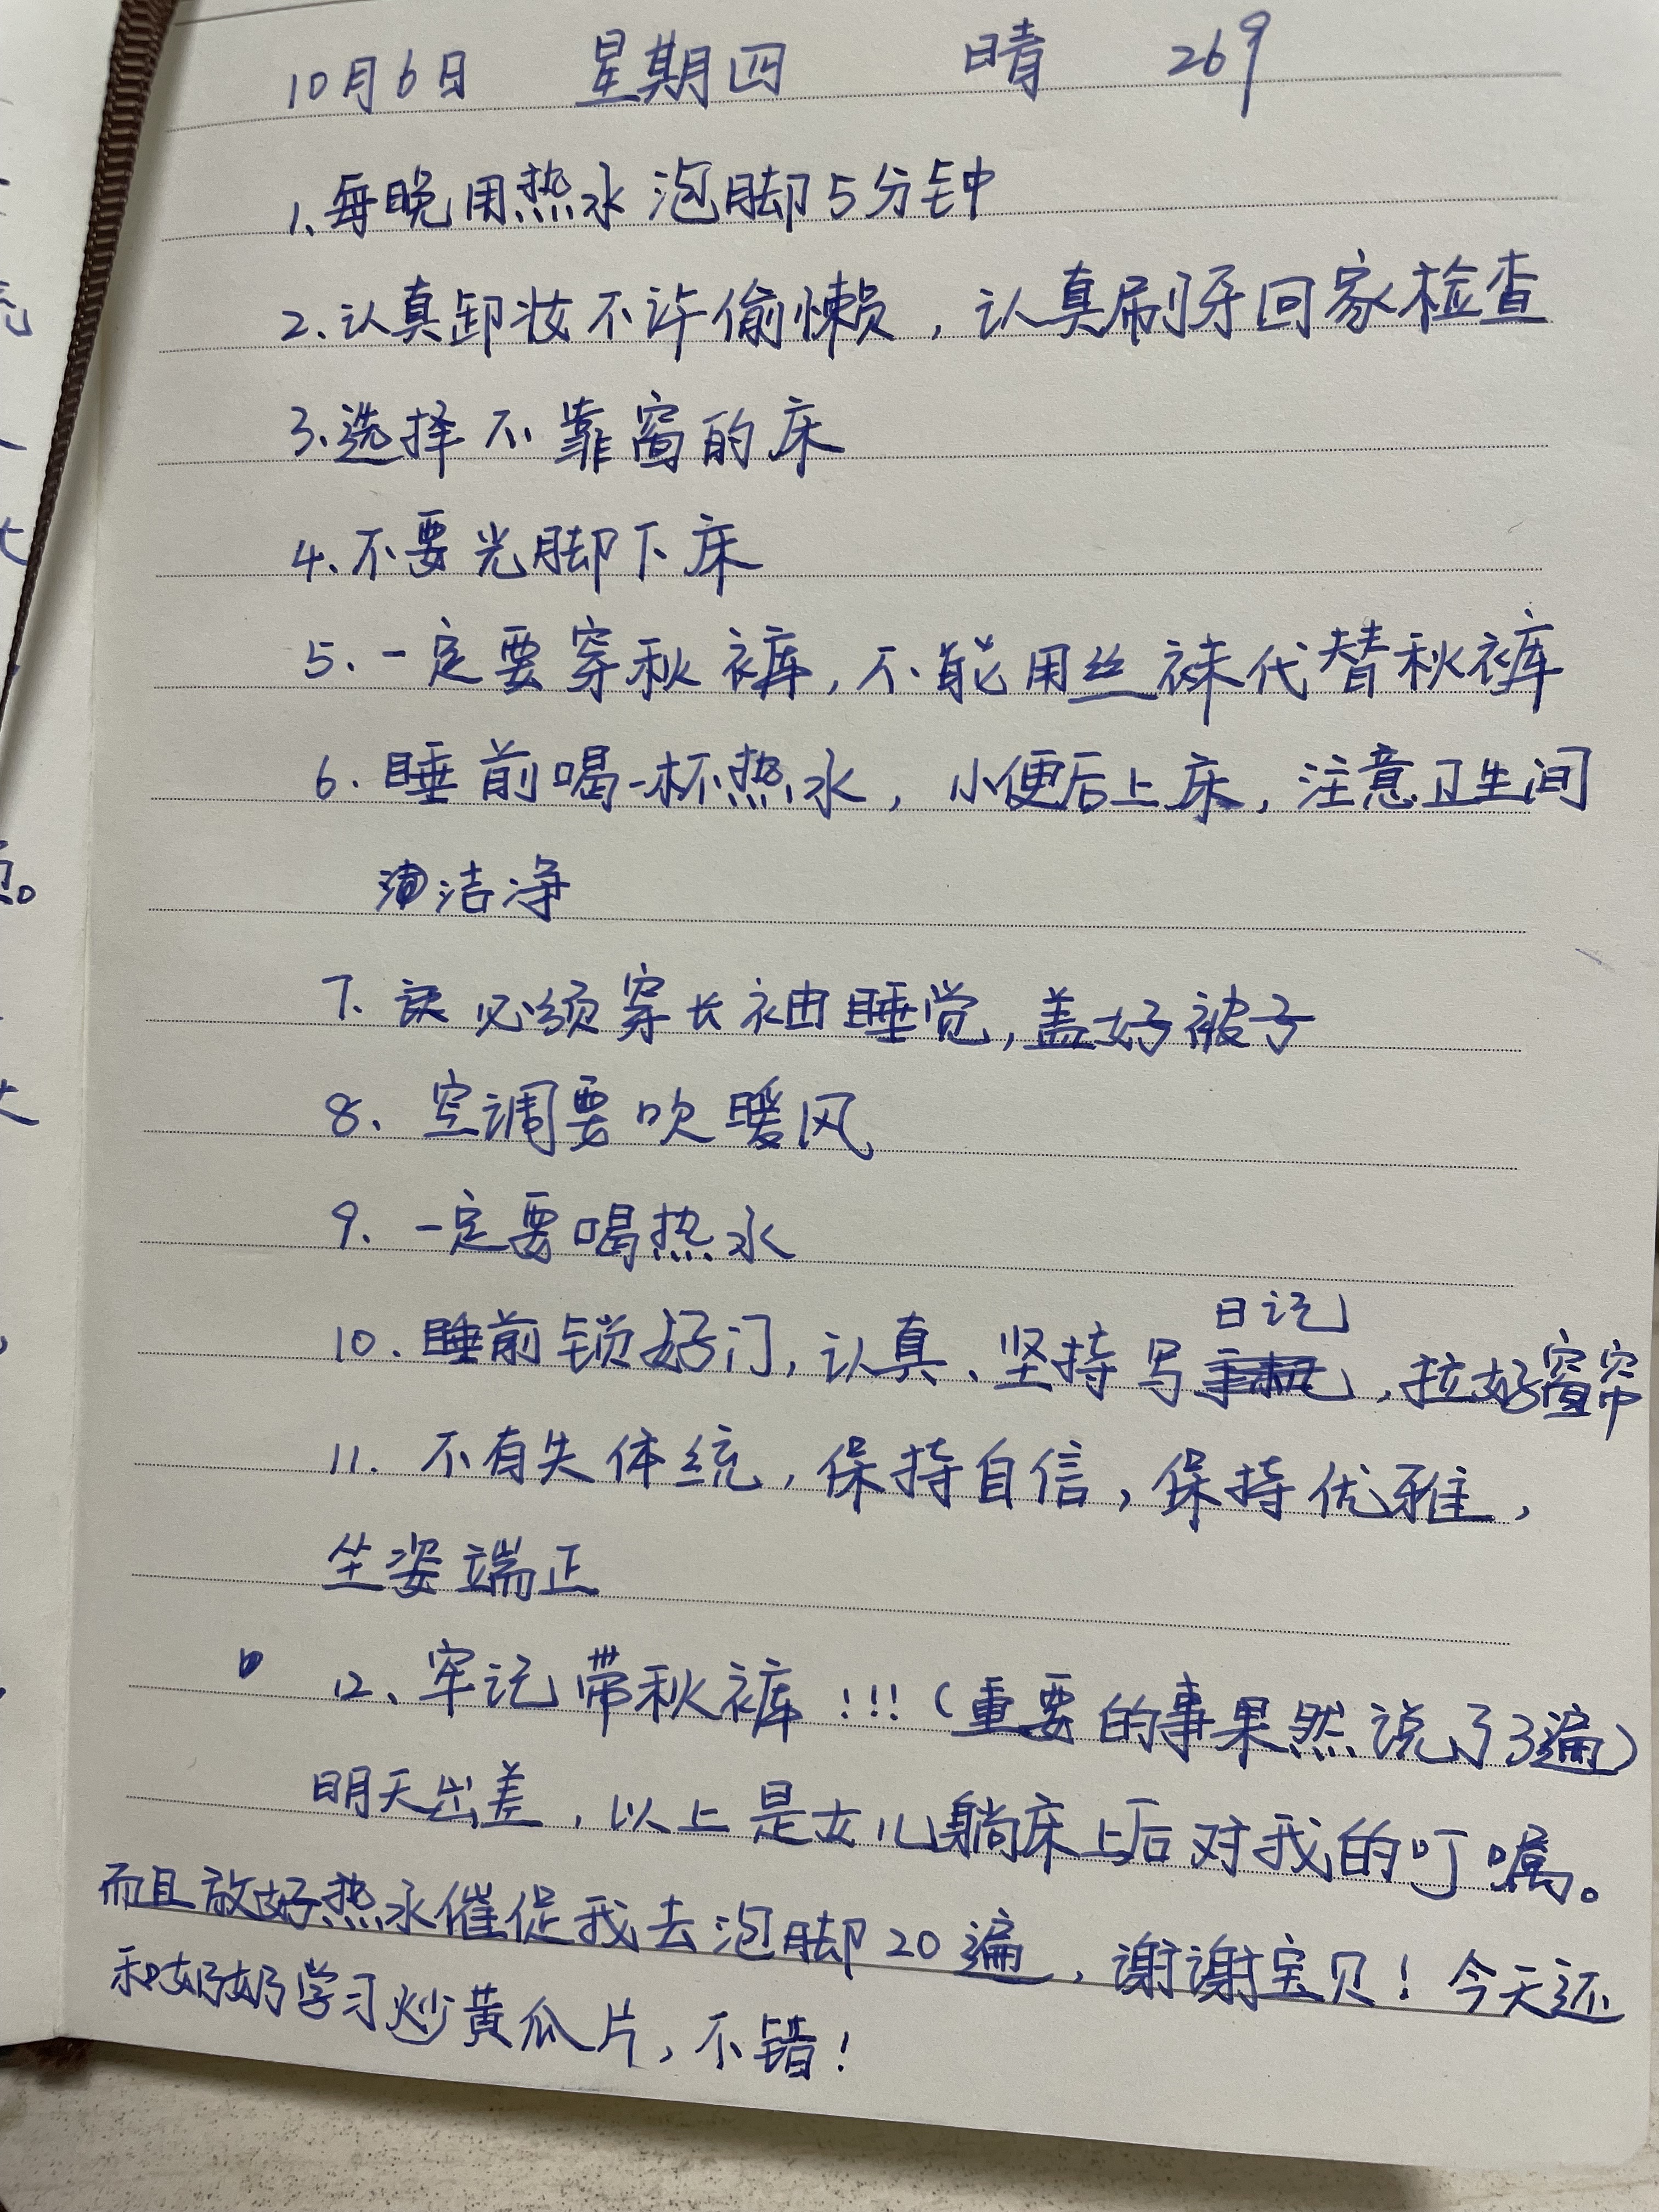 10月6日 星期四 晴 269
1.每晚用热水泡脚5分钟
2.认真卸妆不许偷懒，认真刷牙回家检查
3.选择不靠窗的床
4.不要光脚下床
5.一定要穿秋裤，不能用丝袜代替秋裤
6.睡前喝一杯热水，小便后上床，注意卫生间
洁净
7.必须穿长袖睡觉，盖好被子
8、空调要吹暖风
9.一定要喝热水
10.睡前锁好门，认真、坚持写日记，拉好窗帘
11.不有失体统，保持自信，保持优雅，
坐姿端正
12、牢记带秋裤！！！（重要的事果然说了3遍）
明天出差，以上是女儿躺床上后对我的叮嘱。
而且放好热水催促我去泡脚20遍，谢谢宝贝！今天还
和奶奶学习炒黄瓜片，不错！